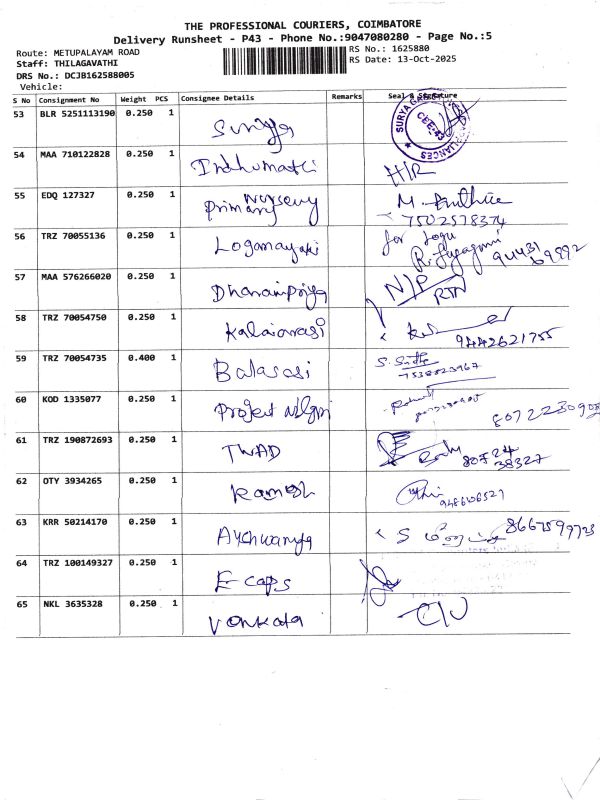 THE PROFESSIONAL COURIERS, COIMBATORE
Delivery Runsheet - P43 - Phone No.:9047080280 - Page No.:5
Route: METUPALAYAM ROAD
RS No.: 1625880
Staff: THILAGAVATHI
RS Date: 13-Oct-2025
DRS No.: DCJB162588005
Vehicle:
S No Consignment No Weight PCS Consignee Details Remarks Seal & Signature
53 BLR 5251113190 0.250 1 Surya
54 MAA 710122828 0.250 1 Indhumathi H/R
55 EDQ 127327 0.250 1 Primary Nursery M.
7502578374
56 TRZ 70055136 0.250 1 Logamayaki for Logu
94431 69892
57 MAA 576266020 0.250 1 Dhanampriya N/P
RTN
58 TRZ 70054750 0.250 1 Kalaiarasi
9442621755
59 TRZ 70054735 0.400 1 Balasasi S.
7538823967
60 KOD 1335077 0.250 1 Project
61 TRZ 190872693 0.250 1 TWAD
80724
38327
62 OTY 3934265 0.250 1 Kamesh
63 KRR 50214170 0.250 1 Ayshwarya
64 TRZ 100149327 0.250 1 E-caps
65 NKL 3635328 0.250 1 Venkata